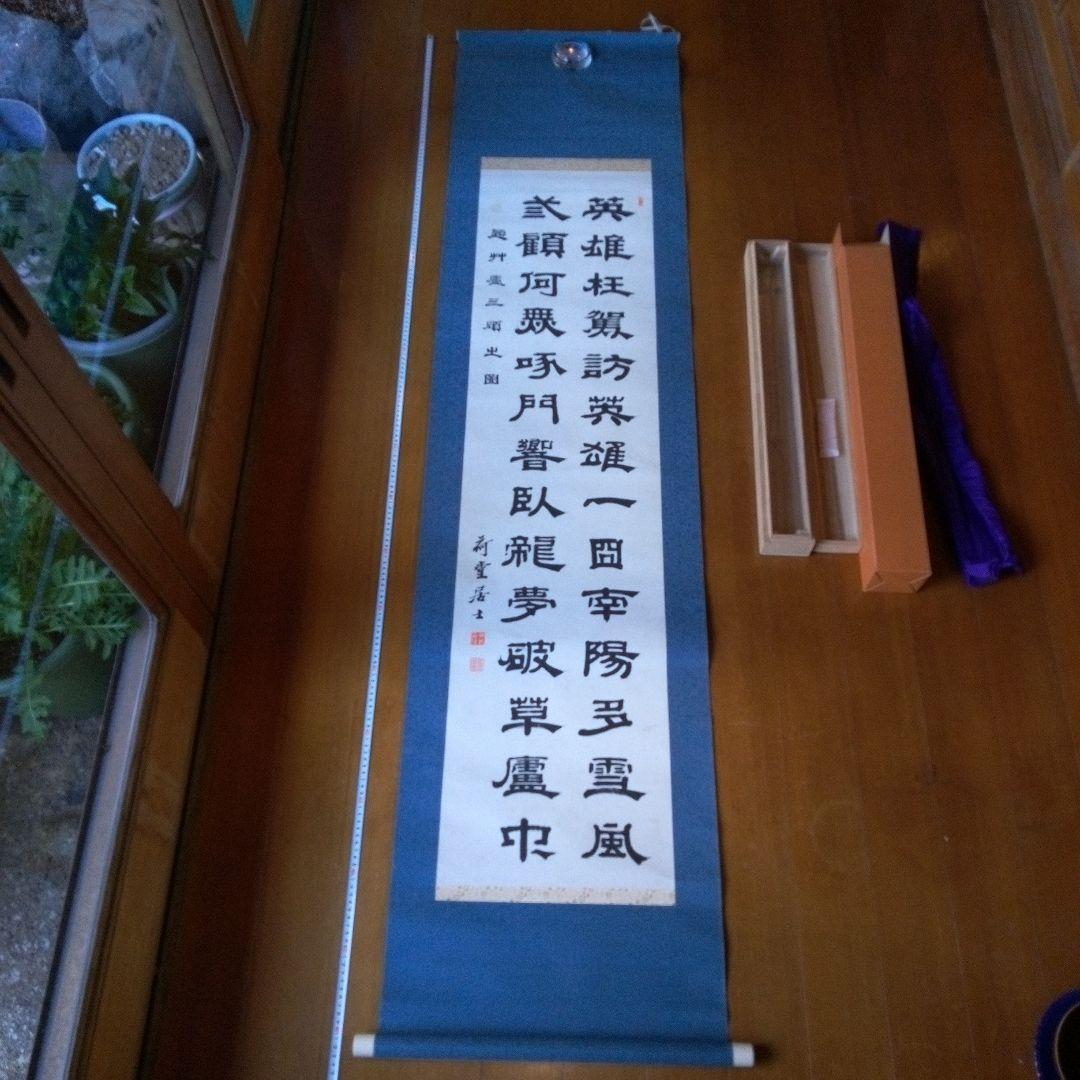 英雄枉駕訪英雄一回南陽多雪風
弎顧何啄門響臥龍夢破草廬中
題艸廬三顧之圖
荷堂居士